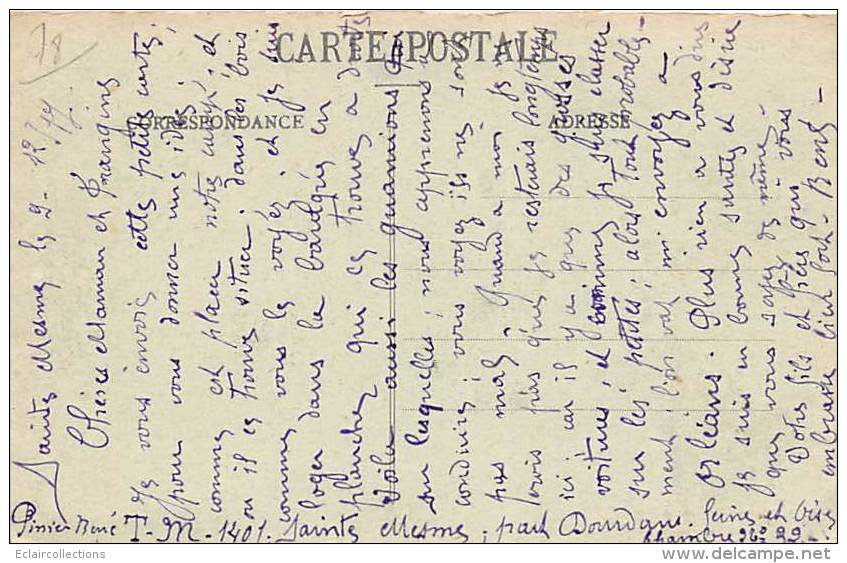 78
CARTE POSTALE
CORRESPONDANCE
ADRESSE
Sainte Mesme le 2-12/
Chères Maman et Frangine
Je vous envoie cette petite carte,
pour vous donner une idée;
comme est placer notre camp; et
ou il ce trouve situer. dans les bois
comme vous le voyez; et je suis
loger dans la baraque en
planches qui ce trouve a droite
Voila aussi les camions
sur lesquelles; nous apprenons a
conduire; vous voyez ils ne sont
pas mal, Quand a moi je
crois pas que je resterais longtemps
ici; car il y a que des grosses
voitures; et comme je suis classer
sur les petites; alors tout probable-
ment l'on vat m'envoyez a
Orléans. Plus rien a vous dire
Je suis en bonne santée et désire
que vous soyez de même.
Votre fils et frère qui vous
embrasse bien fort - René -
Pinier René T-M-1401. Sainte Mesme, part Dourdan. Seine et Oise
Chambre 26 22
©Eclaircollections
www.delcampe.net